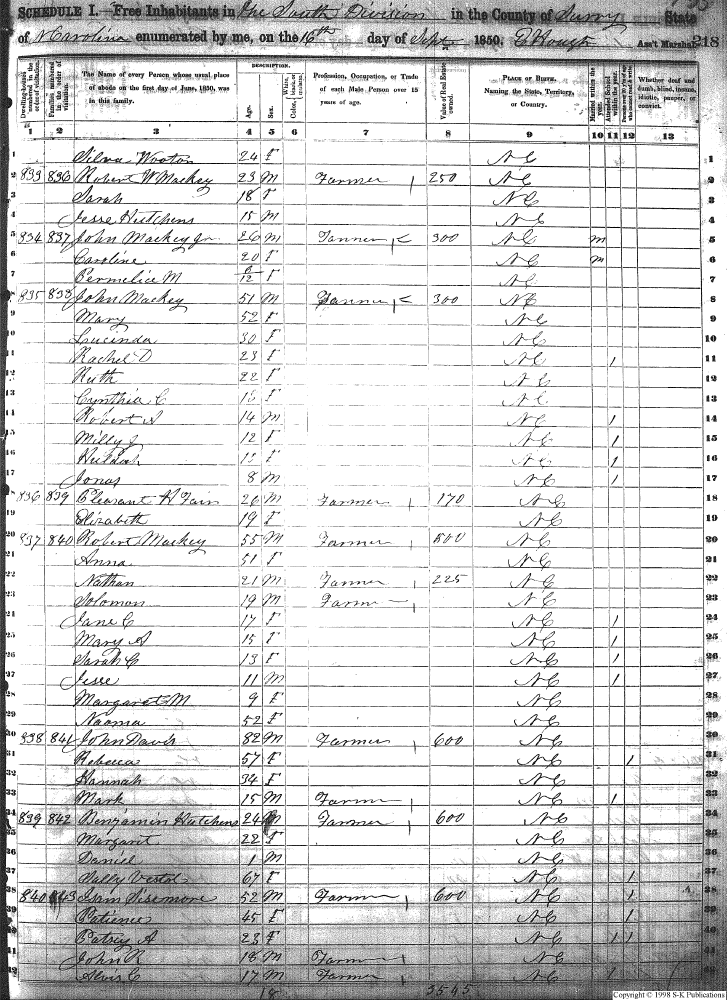 SCHEDULE I.—Free Inhabitants in The South Division in the County of Surry State
of N Carolina enumerated by me, on the 16th day of Sept 1850. Ass't Marshal. 218
Dwelling-houses numbered in the order of visitation.
Families numbered in the order of visitation.
The Name of every Person whose usual place of abode on the first day of June, 1850, was in this family.
DESCRIPTION.
Age.
Sex.
Color, White, black, or mulatto.
Profession, Occupation, or Trade of each Male Person over 15 years of age.
Value of Real Estate owned.
PLACE OF BIRTH. Naming the State, Territory, or Country.
Married within the year.
Attended School within the year.
Persons over 20 y'rs of age who cannot read & write.
Whether deaf and dumb, blind, insane, idiotic, pauper, or convict.
1 2 3 4 5 6 7 8 9 10 11 12 13
1 Silva Wooton 24 F NC 1
2 833 836 Robert W Mackey 23 M Farmer 250 NC 2
3 Sarah 18 F NC 3
4 Jesse Hutchens 15 M NC 4
5 834 837 John Mackey Jr 26 M 300 NC m 5
6 Caroline 20 F NC m 6
7 Permelia M /12 F NC 7
8 835 838 John Mackey 51 M 300 NC 8
9 Mary 52 F NC 9
10 Lucinda 30 F NC 10
11 Rachel D 23 F NC / 11
12 Ruth 22 F NC 12
13 Cynthia C 16 F NC 13
14 Robert 14 M NC / 14
15 Milly J 12 F NC / 15
16 Huldah 12 F NC / 16
17 Jonas 8 M NC / 17
18 836 839 Pleasant H Fain 26 M Farmer 170 NC 18
19 Elizabeth 19 F NC 19
20 837 840 Robert Mackey 55 M Farmer 500 NC 20
21 Anna 51 F NC 21
22 Nathan 21 M Farmer 225 NC 22
23 Solomon 19 M Farmer NC 23
24 Jane C 17 F NC / 24
25 Mary A 15 F NC / 25
26 Sarah C 13 F NC / 26
27 Jesse 11 M NC / 27
28 Margaret M 9 F NC 28
29 Naoma 52 F NC 29
30 838 841 John Davis 82 M Farmer 600 NC 30
31 Rebecca 57 F NC / 31
32 Hannah 34 F NC 32
33 Mark 15 M Farmer NC / 33
34 839 842 Benjamin Hutchens 24 M Farmer 600 NC 34
35 Margaret 22 F NC 35
36 Daniel 1 M NC 36
37 Sally Vestal 67 F NC / 37
38 840 843 Isam Sisemore 52 M Farmer 600 NC / 38
39 Patience 45 F NC / 39
40 Patsey A 23 F NC / / 40
41 John R 18 M Farmer NC 41
42 Alvis C 17 M Farmer NC / 42
18 3545
Copyright © 1998 S-K Publications